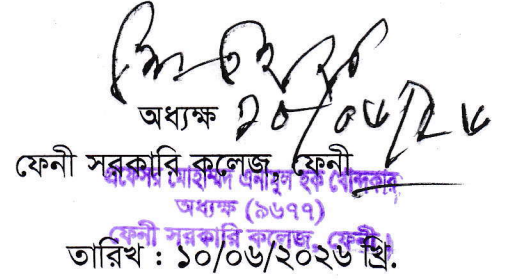 অধ্যক্ষ ১০/০৬/২৬
ফেনী সরকারি কলেজ, ফেনী
প্রফেসর মোহাম্মদ এনামুল হক খোন্দকার
অধ্যক্ষ (৯৬৭৭)
ফেনী সরকারি কলেজ, ফেনী।
তারিখ : ১০/০৬/২০২৬ খ্রি.